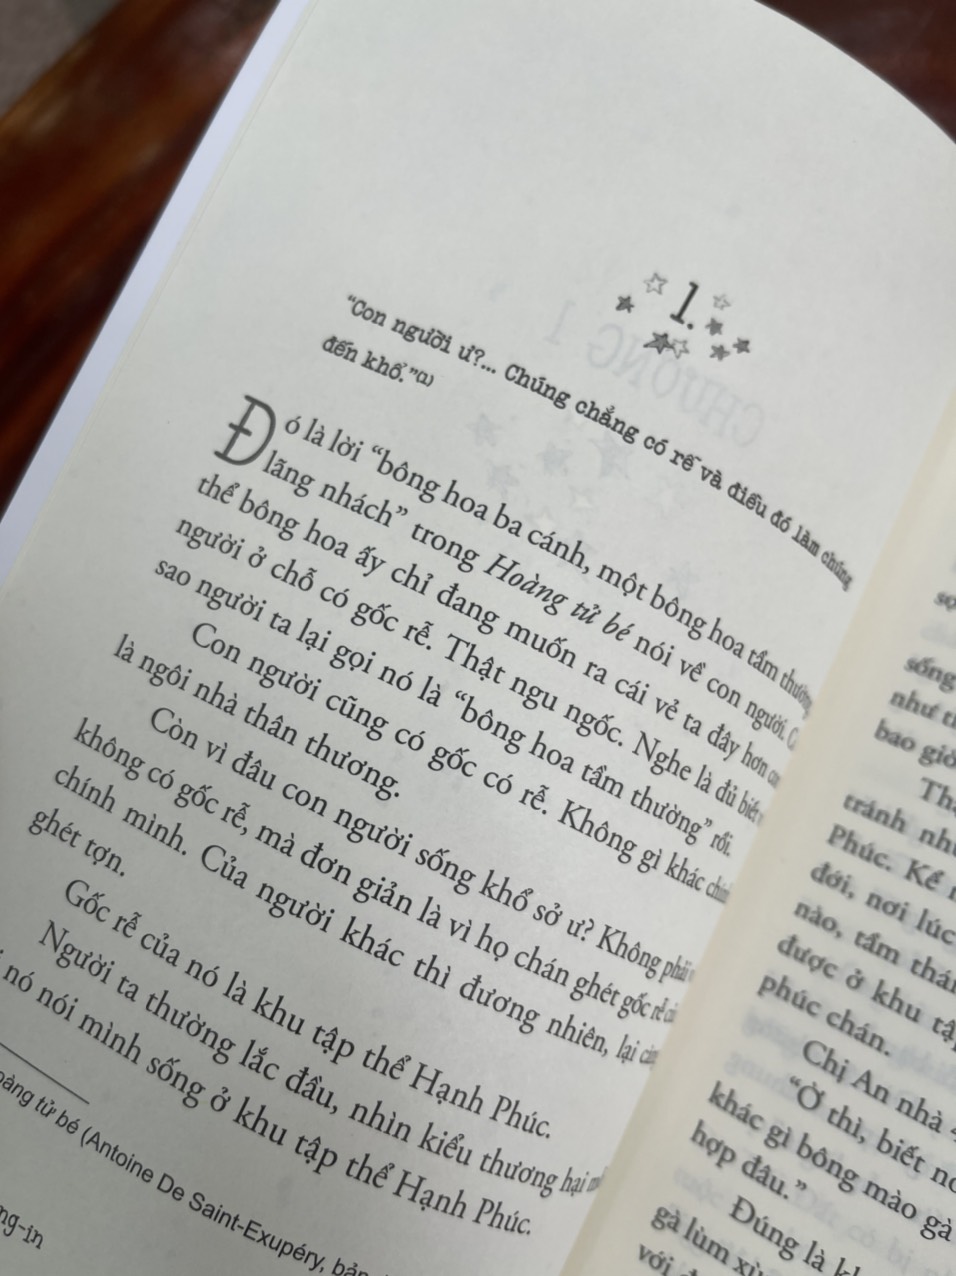 1.
“Con người ư?... Chúng chẳng có rễ và điều đó làm chúng
đến khổ.”(1)
Đó là lời “bông hoa ba cánh, một bông hoa tầm thường,
lãng nhách” trong Hoàng tử bé nói về con người.
thể bông hoa ấy chỉ đang muốn ra cái vẻ ta đây hơn
người ở chỗ có gốc rễ. Thật ngu ngốc. Nghe là đủ biết
sao người ta lại gọi nó là “bông hoa tầm thường” rồi.
Con người cũng có gốc có rễ. Không gì khác
là ngôi nhà thân thương.
Còn vì đâu con người sống khổ sở ư? Không phải
không có gốc rễ, mà đơn giản là vì họ chán ghét gốc rễ
chính mình. Của người khác thì đương nhiên, lại
ghét tợn.
Gốc rễ của nó là khu tập thể Hạnh Phúc.
Người ta thường lắc đầu, nhìn kiểu thương hại
nó nói mình sống ở khu tập thể Hạnh Phúc.
tử bé (Antoine De Saint-Exupéry,
sống
như
bao giờ
tránh
Phúc. Kế
đới, nơi lúc
nào, tầm
được ở khu
phúc chán.
Chị An nhà
“Ờ thì, biết
khác gì bông mào gà
hợp đâu.”
Đúng là
gà lùm
với